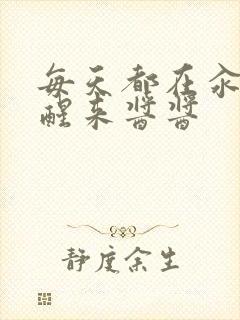 每天都在汆
醒来酱酱
静度余生